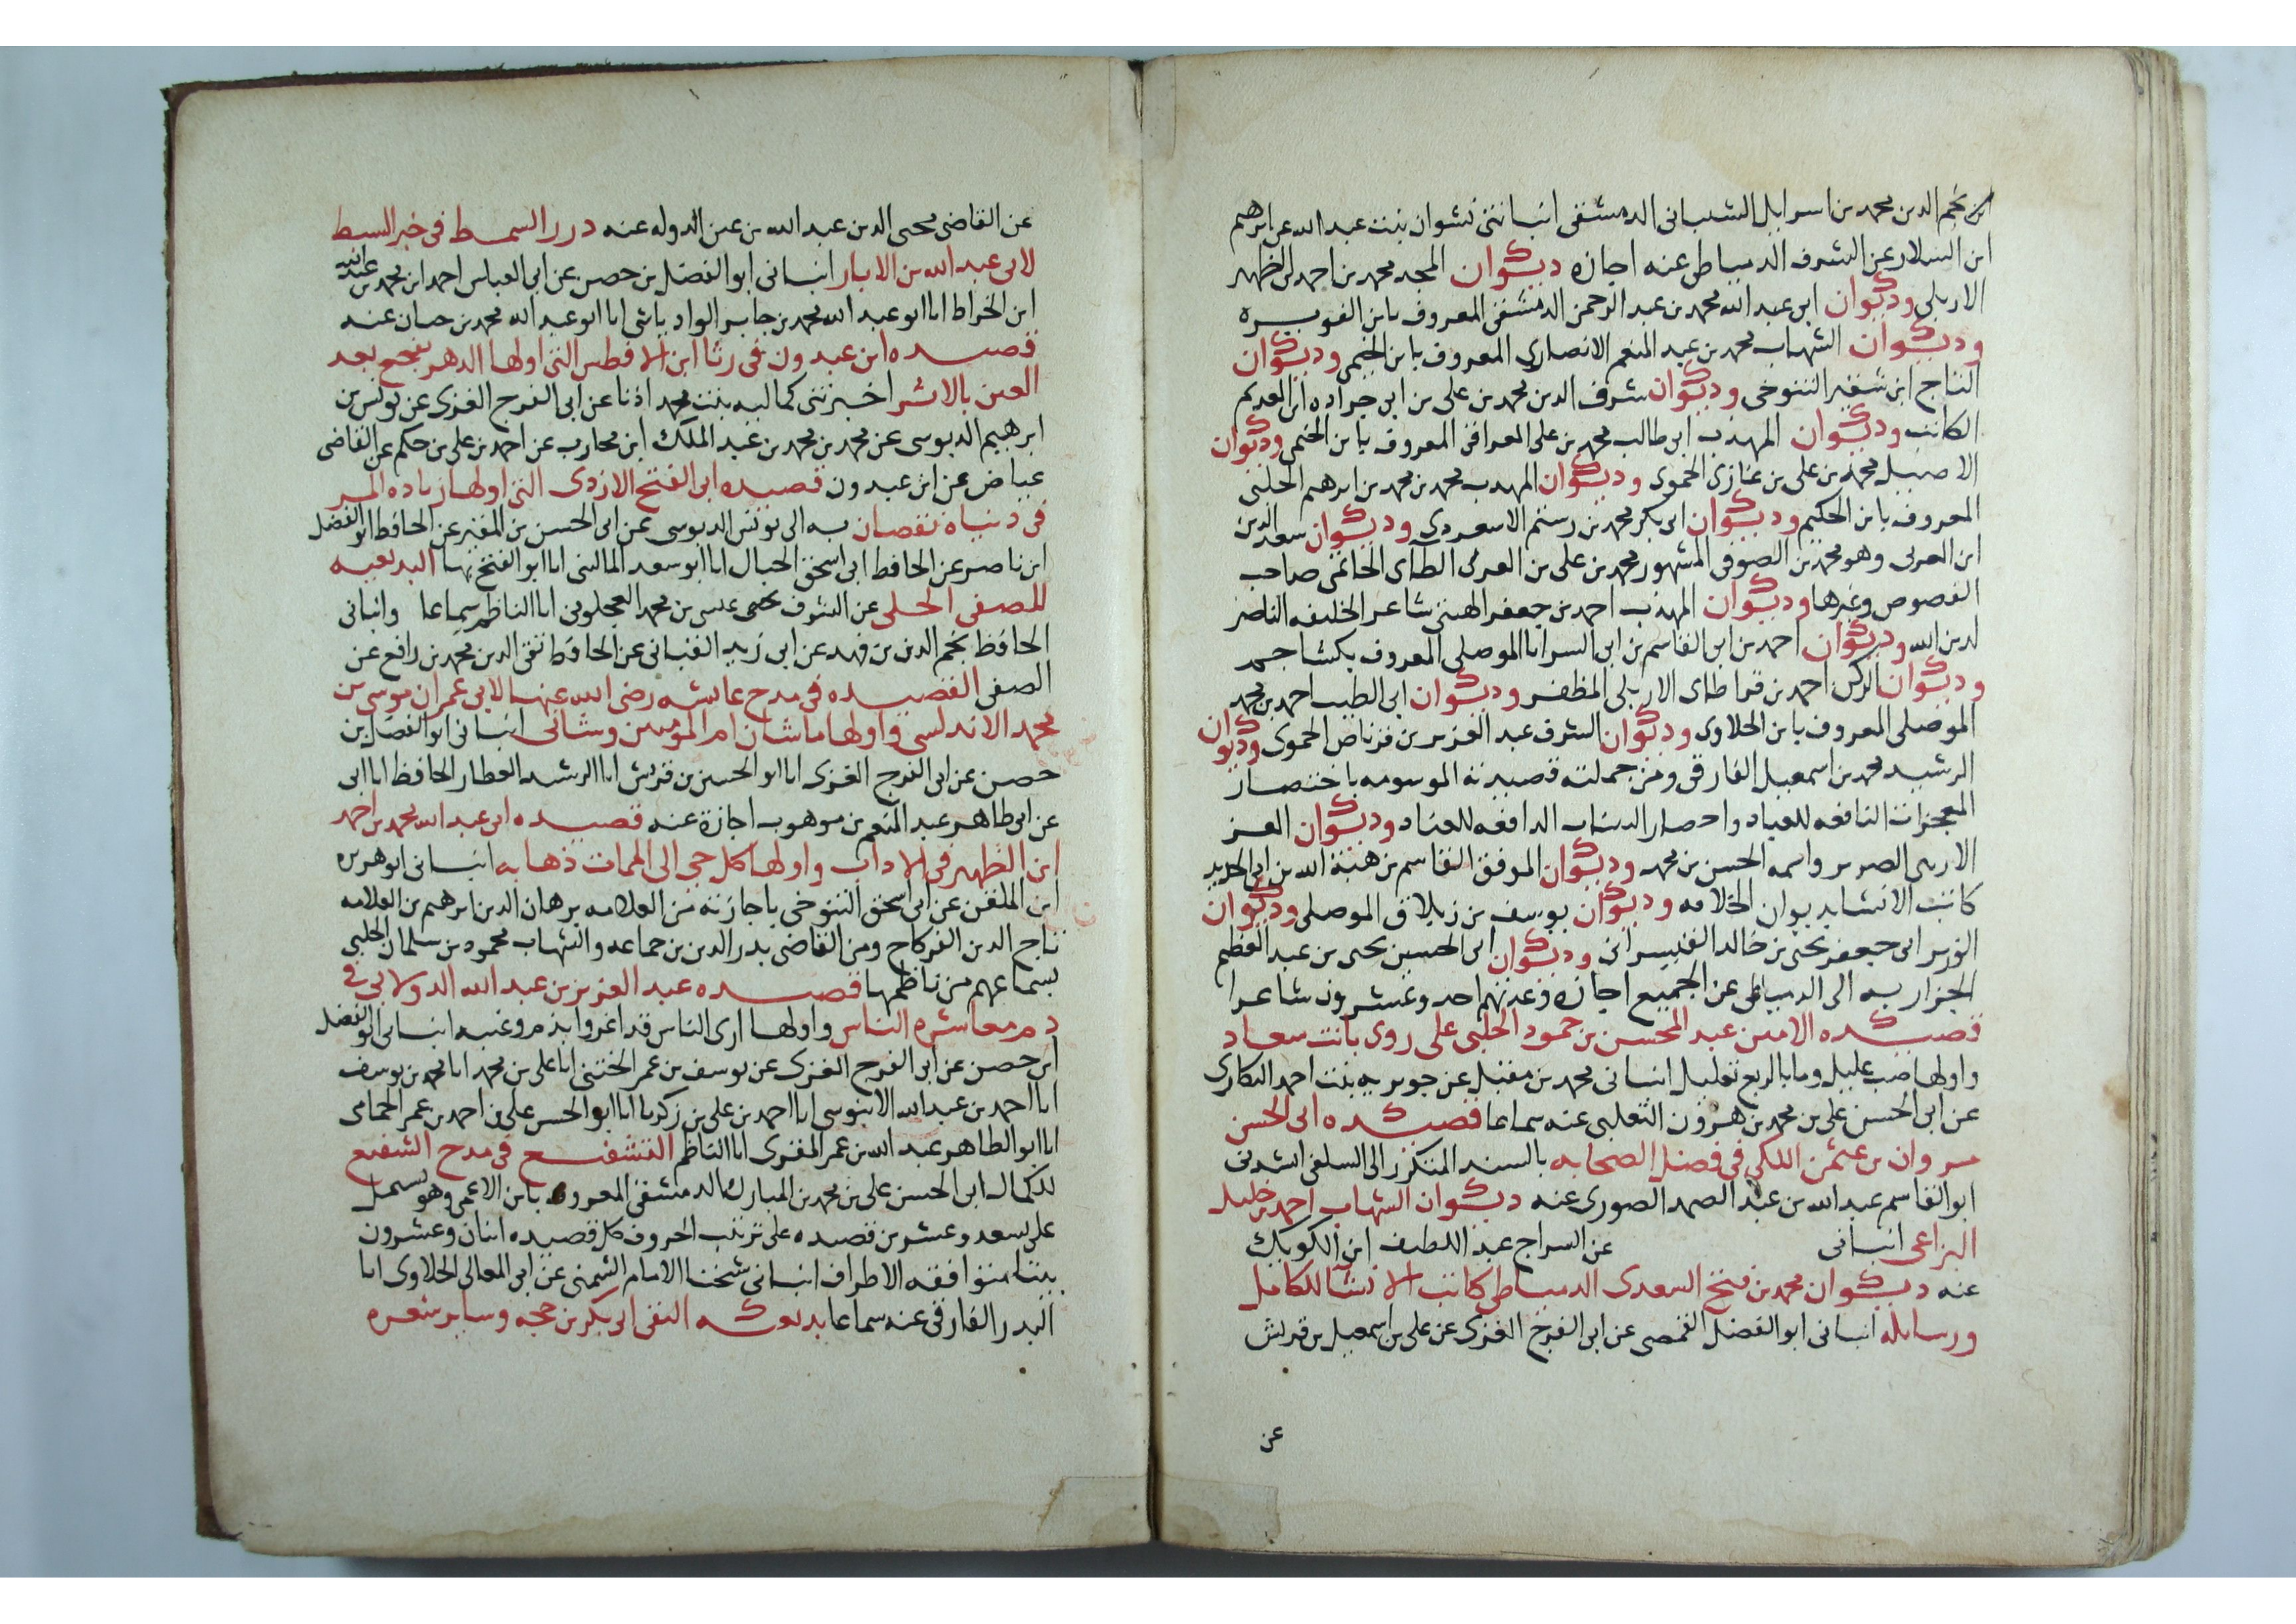 ابن نجم الدين محمد بن اسرايل الشيبانى الدمشقى انبانتنى نشوان بنت عبد الله عن ابرهيم
ابن السلار عن الشرف الدمياطى عنه اجازه ديوان المجد محمد بن احمد ابن الظهير
الاربلى وديوان ابى عبد الله محمد بن عبد الرحمن الدمشقى المعروف بابن الفويره
وديوان الشهاب محمد بن عبد المنعم الانصارى المعروف بابن الخيمى وديوان
التاج ابن شقير التنوخى وديوان شرف الدين محمد بن على بن ابى جراده ابن العديم
الكاتب وديوان المهذب ابى طالب محمد بن على العراقى المعروف بابن الخيمى وديوان
الاصيل محمد بن على بن غازى الحموى وديوان المهذب محمد بن محمد بن ابرهيم الحلبى
المعروف بابن الحكيم وديوان ابى بكر محمد بن رستم الاسعردى وديوان سعد الدين
ابن العربى وهو محمد بن الصوفى المشهور محمد بن على بن العربى الطآى الحاتمى صاحب
الفصوص وغيرها وديوان المهذب احمد بن جعفر شاعر الخليفه الناصر
لدين الله وديوان احمد بن ابى القاسم بن ابى السرايا الموصلى المعروف بكشاجم
وديوان الركن احمد بن قراطاى الاربلى المظفر وديوان ابى الطيب احمد بن محمد
الموصلى المعروف بابن الحلاوى وديوان الشرف عبد العزيز بن قرناص الحموى وديوان
الرشيد محمد بن اسمعيل الفارقى ومن جملته قصيدته الموسومه باختصار
المعجزات النافعه للعباد واحصار الدافعه للعناد وديوان العز
الاربلى الضرير واسمه الحسن بن محمد وديوان الموفق القاسم بن هبة الله بن ابى الحديد
كاتب الانشا بديوان الخلافه وديوان يوسف بن زيلاق الموصلى وديوان
الوزير ابى جعفر يحيى بن خالد القيسرانى وديوان ابى الحسين يحيى بن عبد العظيم
الجزار به الى الدمياطى عن الجميع اجازه وعدتهم احد وعشرون شاعرا
قصيده الامين عبد المحسن بن حمود الحلبى على روى بانت سعاد
واولها صب عليل وما بالربع تعليل انبانى محمد بن مقبل عن جويريه بنت احمد الهكارى
عن ابى الحسن على بن محمد بن هرون الثعلبى عنه سماعا قصيده ابى الحسن
مروان بن عثمن اللكى فى فضل الصحابه بالسند المتكرر الى السلفى انشدنى
ابو القاسم عبد الله بن عبد الصمد الصورى عنه ديوان الشهاب احمد بن خليل
البزاعى انبانى عن السراج عبد اللطيف ابن الكويك
عنه ديوان محمد بن فتح السعدى الدمياطى كاتب الانشا للكامل
ورسايله انبانى ابو الفضل القمصى عن ابى الفرج الغزى عن على بن اسمعيل بن قريش
عن
عن القاضى محيى الدين عبد الله بن عين الدوله عنه درر السمط فى خبر السبط
لابى عبد الله بن الابار انبانى ابو الفضل بن حصن عن ابى العباس احمد ابن محمد بن عبد الله
ابن الخراط انا ابو عبد الله محمد بن جابر الوادياشى انا ابو عبد الله محمد بن حيان عنه
قصيده ابن عبدون فى رثا ابن الافطس التى اولها الدهر يفجع بعد
العين بالاثر اخبرتنى كماليه بنت محمد اذنا عن ابى الفرج الغزى عن يونس بن
ابرهيم الدبوسى عن محمد بن محمد بن عبد الملك ابن محارب عن احمد بن على بن حكم عن القاضى
عياض عن ابن عبدون قصيده ابى الفتح الازدى التى اولها زياده المر
فى دنياه نقصان به الى يونس الدبوسى عن ابى الحسن بن المقير عن الحافظ ابو الفضل
ابن ناصر عن الحافظ ابى اسحق الحبال انا ابو سعد المالينى انا ابو الفتح بها البديعيه
للصفى الحلى عن الشرف عيسى بن محمد العجلونى انا الناظم سماعا وانبانى
الحافظ نجم الدين بن فهد عن ابى زيد القبانى عن الحافظ تقى الدين محمد بن رافع عن
الصفى القصيده فى مدح عايشه رضى الله عنها لابى عمران موسى بن
محمد الاندلسى واولها ما شان ام المومنين وشانى انبانى ابو الفضل بن
حصن عن ابى الفرج الغزى انا ابو الحسن بن قريش انا الرشيد العطار الحافظ انا ابى
عن ابى طاهر عبد المنعم بن موهوب اجازة عنه قصيده ابى عبد الله محمد بن احمد
ابن الظهير فى الاداب واولها كل حى الى الممات ذهابه انبانى ابو هريره
ابن الملقن عن ابى اسحق التنوخى باجازته من العلامه برهان الدين ابرهيم بن العلامه
تاج الدين الفركاح ومن القاضى بدر الدين بن جماعه والشهاب محمود بن سلمان الحلبى
بسماعهم من ناظمها قصيده عبد العزيز بن عبد الله الدولابى فى
ذم معاشره الناس واولها ارى الناس قد اغروا بذم وغيبه انبانى ابو الفضل
ابن حصن عن ابى الفرج الغزى عن يوسف بن عمر الختنى انا على بن محمد انا محمد بن يوسف
انا احمد بن عبد الله الابنوسى انا احمد بن على بن زكريا انا ابو الحسن على بن احمد بن عمر الحمامى
انا ابو الطاهر عبد الله بن عمر المقرى انا الناظم التشفيع فى مدح الشفيع
للكمال ابى الحسن على بن محمد بن المبارك الدمشقى المعروف بابن الاعمى وهو يشتمل
على تسعه وعشرين قصيده على ترتيب الحروف كل قصيده اثنان وعشرون
بيتا متوافقه الاطراف انبانى شيخنا الامام الشمنى عن ابى المعالى الحلاوى انا
البدر الفارقى عنه سماعا بديعيه التقى ابى بكر بن حجه وساير شعره